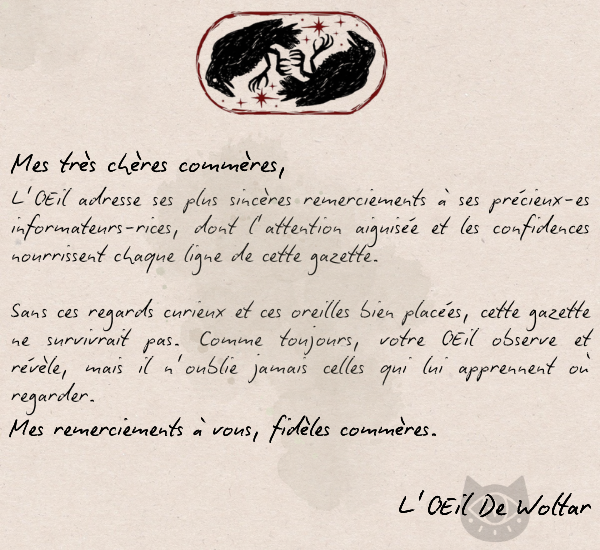 Mes très chères commères,
L'OEil adresse ses plus sincères remerciements à ses précieux-es
informateurs-rices, dont l'attention aiguisée et les confidences
nourrissent chaque ligne de cette gazette.
Sans ces regards curieux et ces oreilles bien placées, cette gazette
ne survivrait pas. Comme toujours, votre OEil observe et
révèle, mais il n'oublie jamais celles qui lui apprennent où
regarder.
Mes remerciements à vous, fidèles commères.
L'OEil De Woltar